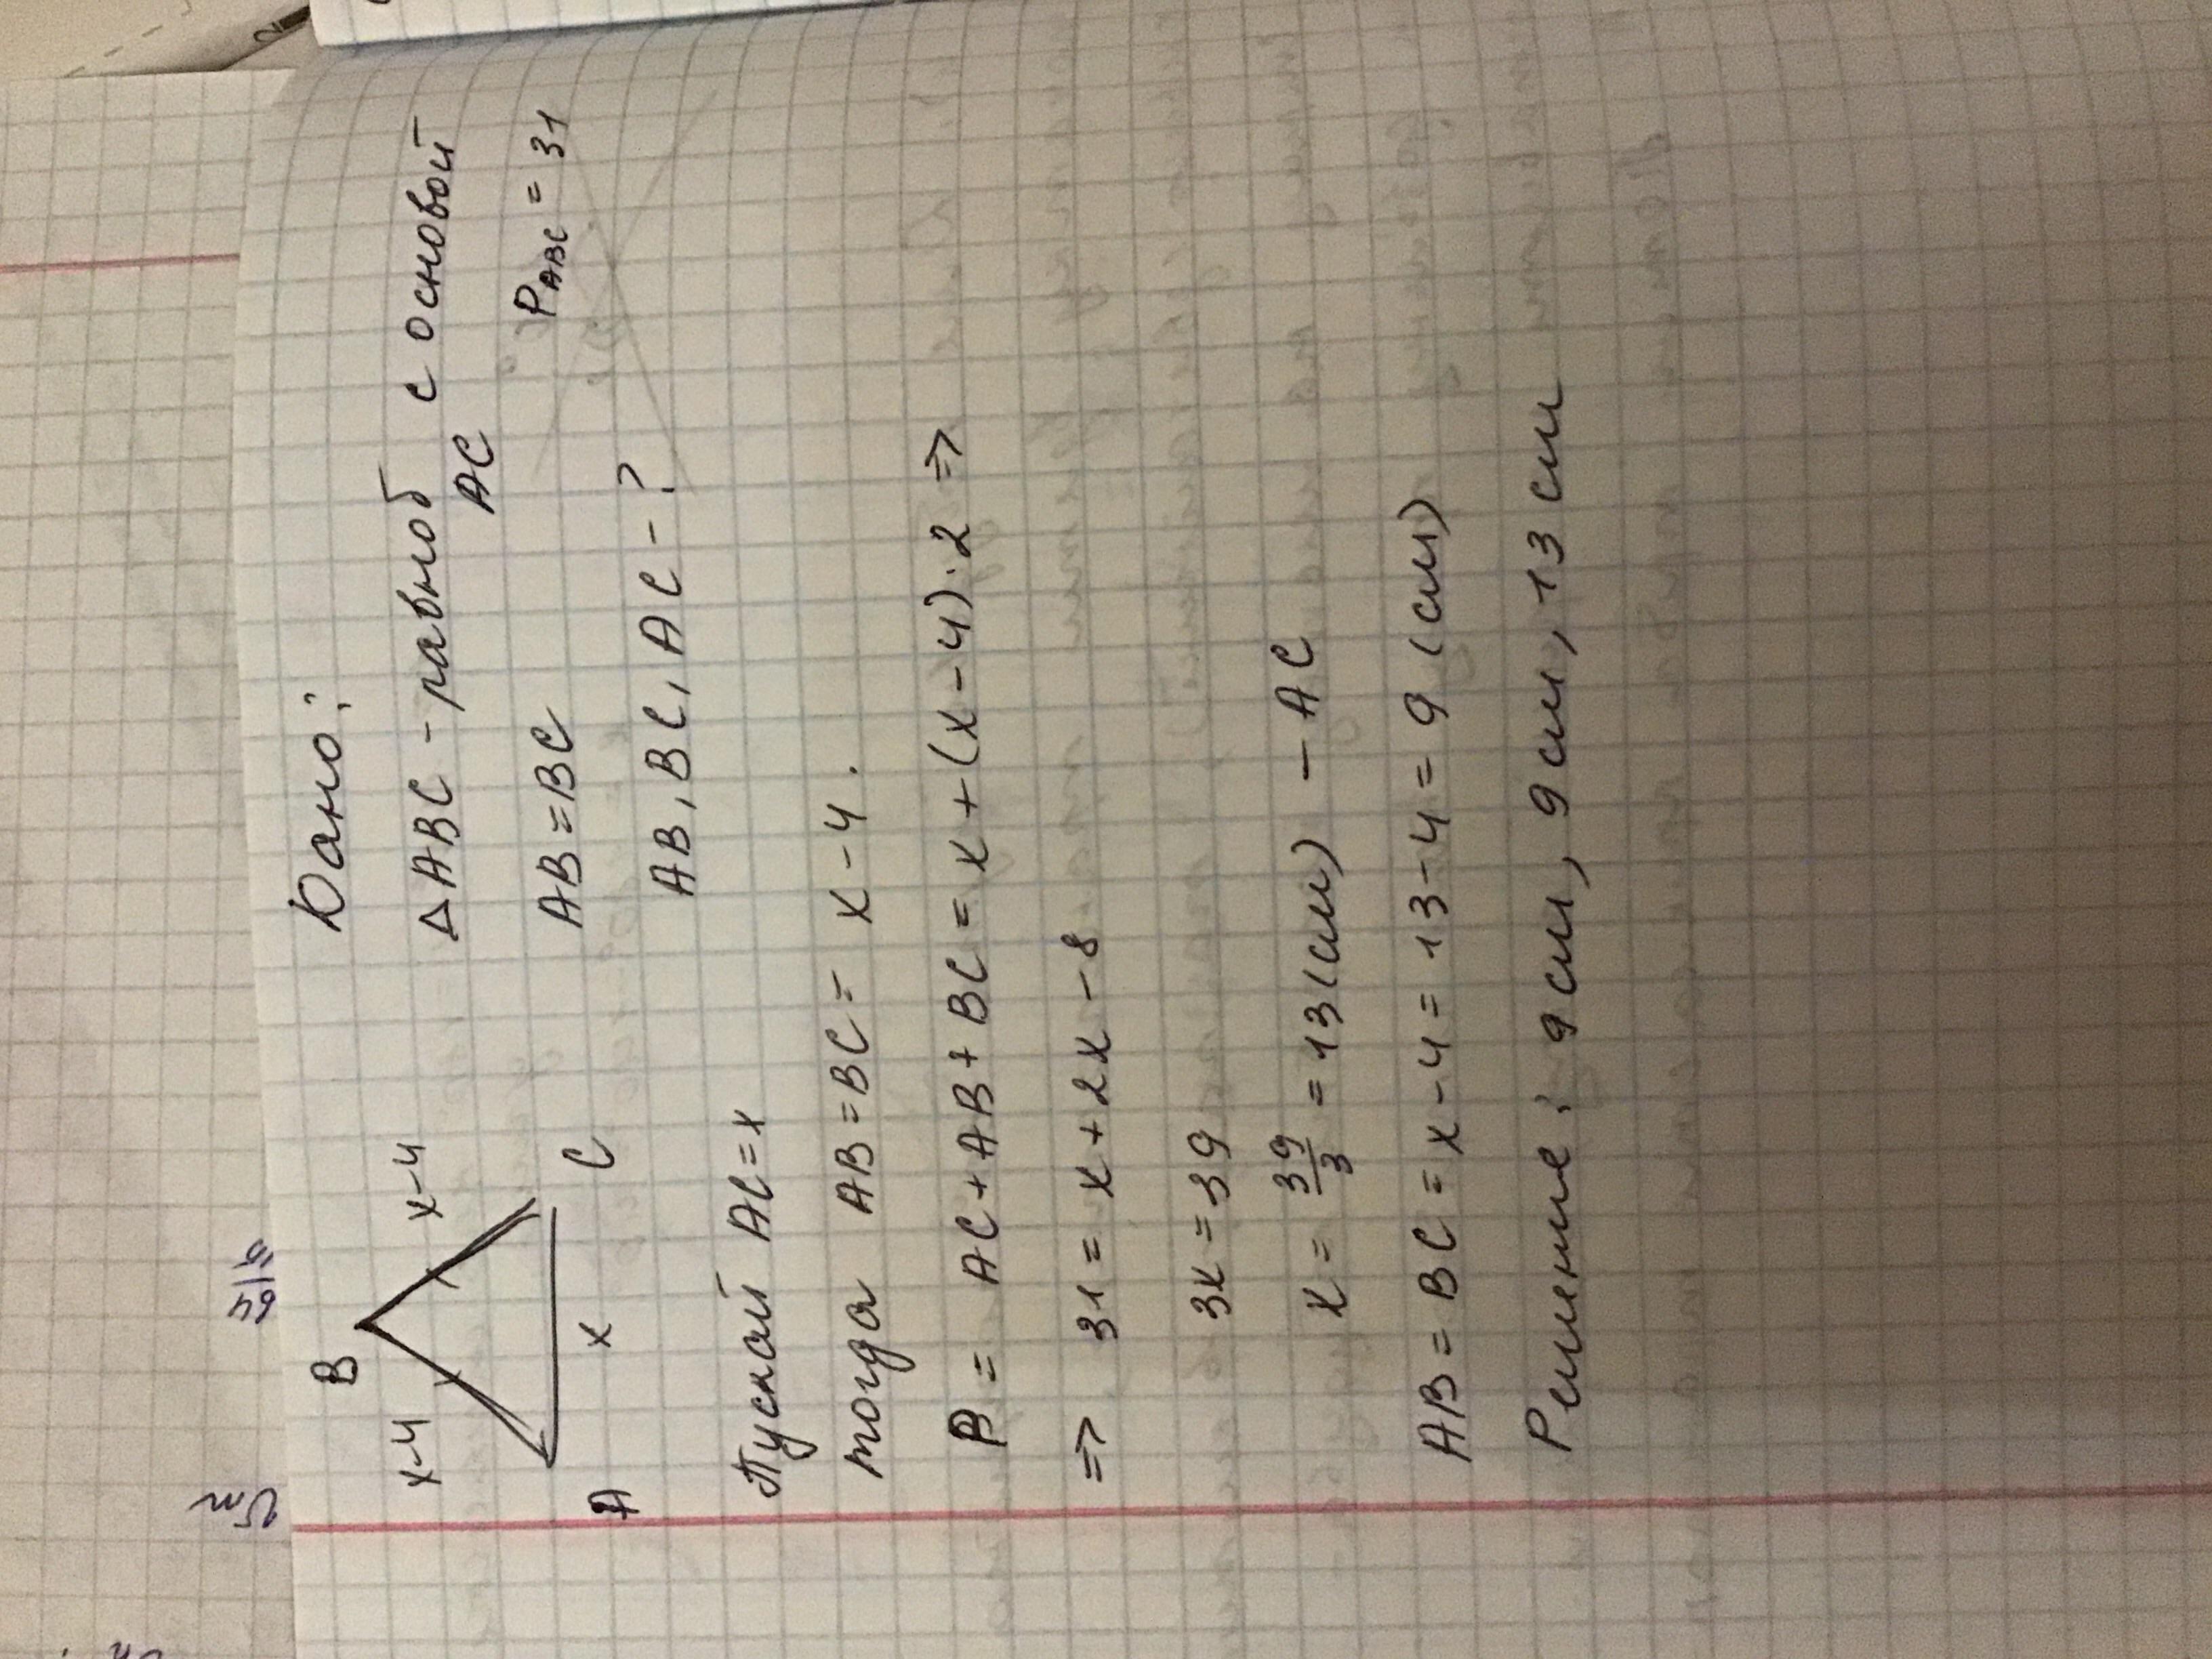 Дано:
B
x-4
x-4
A
x
C
ΔABC - равноб с основой
AC
AB=BC
P ABC = 31
AB, BC, AC - ?
Пускай AC=x
тогда AB=BC= x-4.
P= AC+AB+BC= x+(x-4)·2 =>
=> 31= x+2x-8
3x=39
x= 39/3 =13(см) - AC
AB=BC=x-4=13-4=9 (см)
Решение: 9 см, 9 см, 13 см